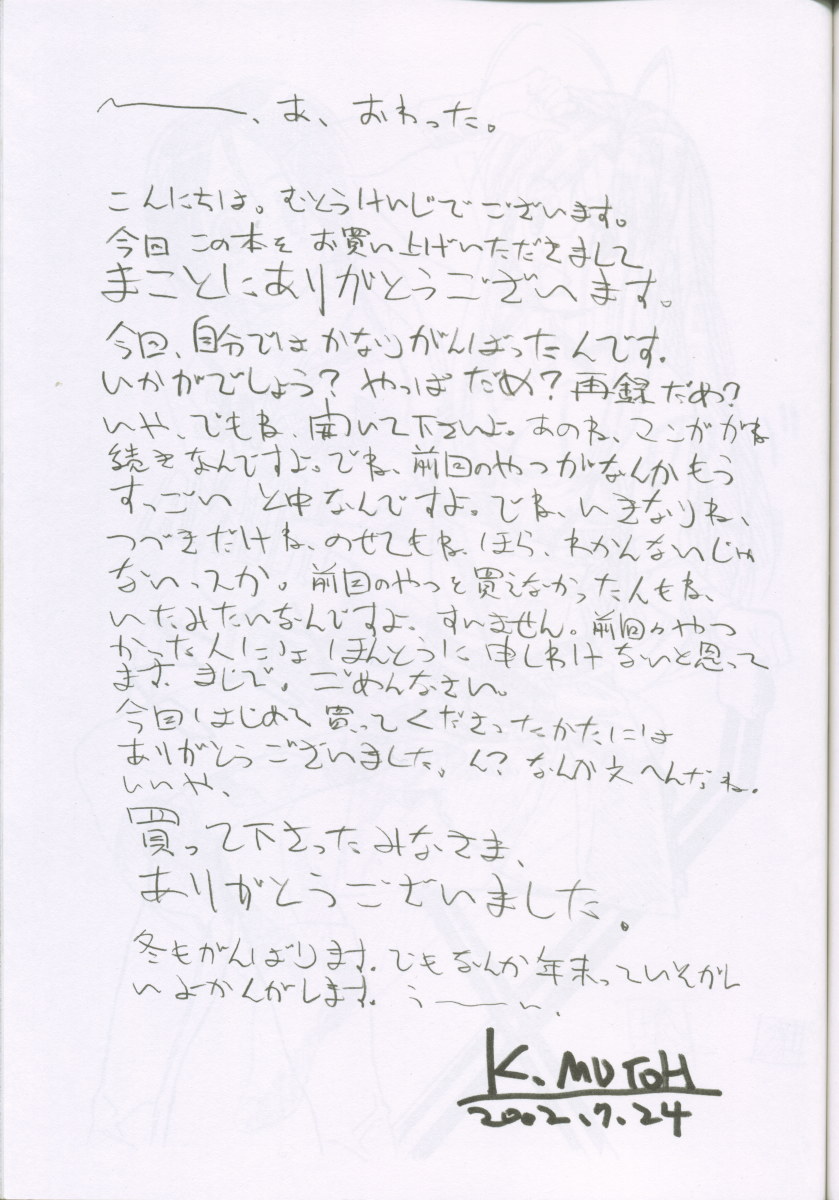 〜、あ、おわった。
こんにちは。むとうけいじでございます。
今回 この本を お買い上げいただきまして
まことにありがとうございます。
今回、自分では かなりがんばったんです。
いかがでしょう? やっぱ だめ? 再録だめ?
いや、でもね、聞いて下さいよ。あのね、マンガがね
続きなんですよ。でね、前回のやつがなんかもう
すっごい と中なんですよ。でね、いきなりね、
つづきだけね、のせてもね、ほら、わかんないじゃ
ないっスか。前回のやつを買えなかった人もね、
いたみたいなんですよ、すいません。前回のやつ
かった人には ほんとうに 申しわけないと思って
ます。まじで。ごめんなさい。
今回はじめて買ってくださったかたには
ありがとうございました。ん? なんか文へんだね。
いいや、
買って下さったみなさま、
ありがとうございました。
冬もがんばります。でもなんか年末っていそがし
いよかんがします。う〜い、
K. MUTOH
2002.7.24